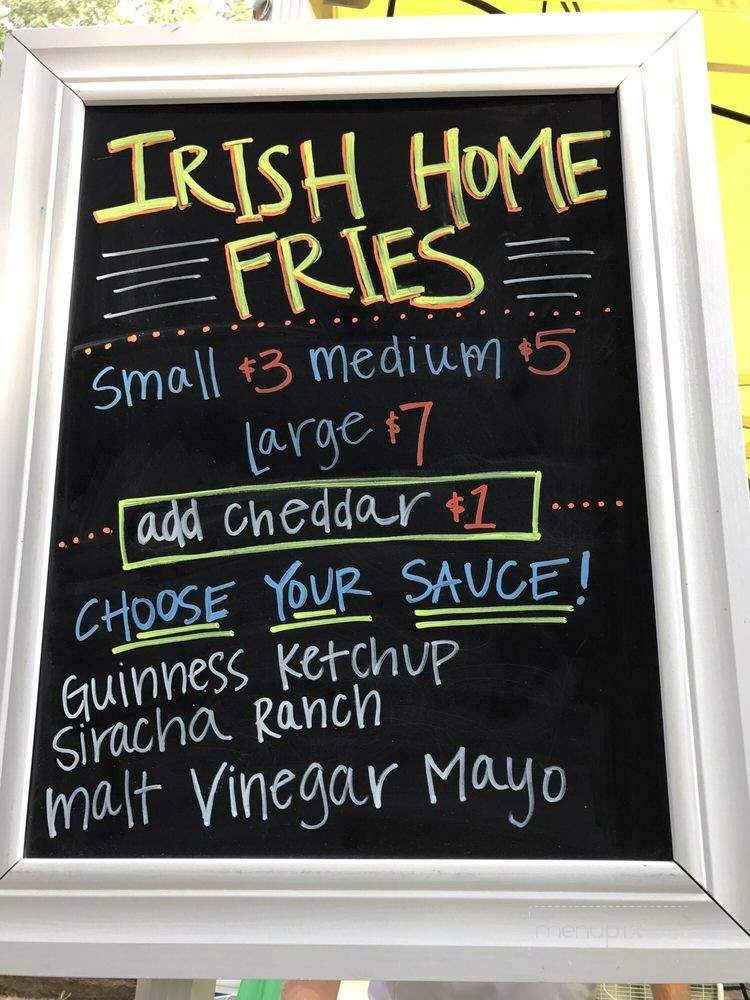 IRISH HOME
FRIES
Small $3 medium $5
Large $7
add cheddar $1
CHOOSE YOUR SAUCE!
Guinness Ketchup
Siracha Ranch
malt Vinegar Mayo
menupix